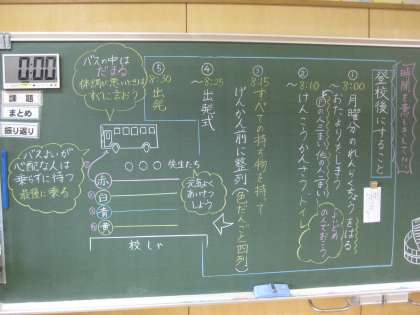 登校後にすること
① 月曜分のれんらくちょうをはる
~8:00 おたよりしまう
② ~8:10 けんこうかんさつ、トイレ
よいどめ
のんでおこう
③ 8:15 すべての持ち物を持って
げんかん前に整列(色だんごと四列)
④ ~8:25 出発式
⑤ 8:30 出発
バスの中は
だまる
体調が悪いときは
すぐに言おう
先生たち
元気よく
あいさつ
しよう
バスよいが
心配な人は
乗らずに待つ
最後に乗る
赤
白
青
黄
校しゃ
0:00
課題
まとめ
振り返り